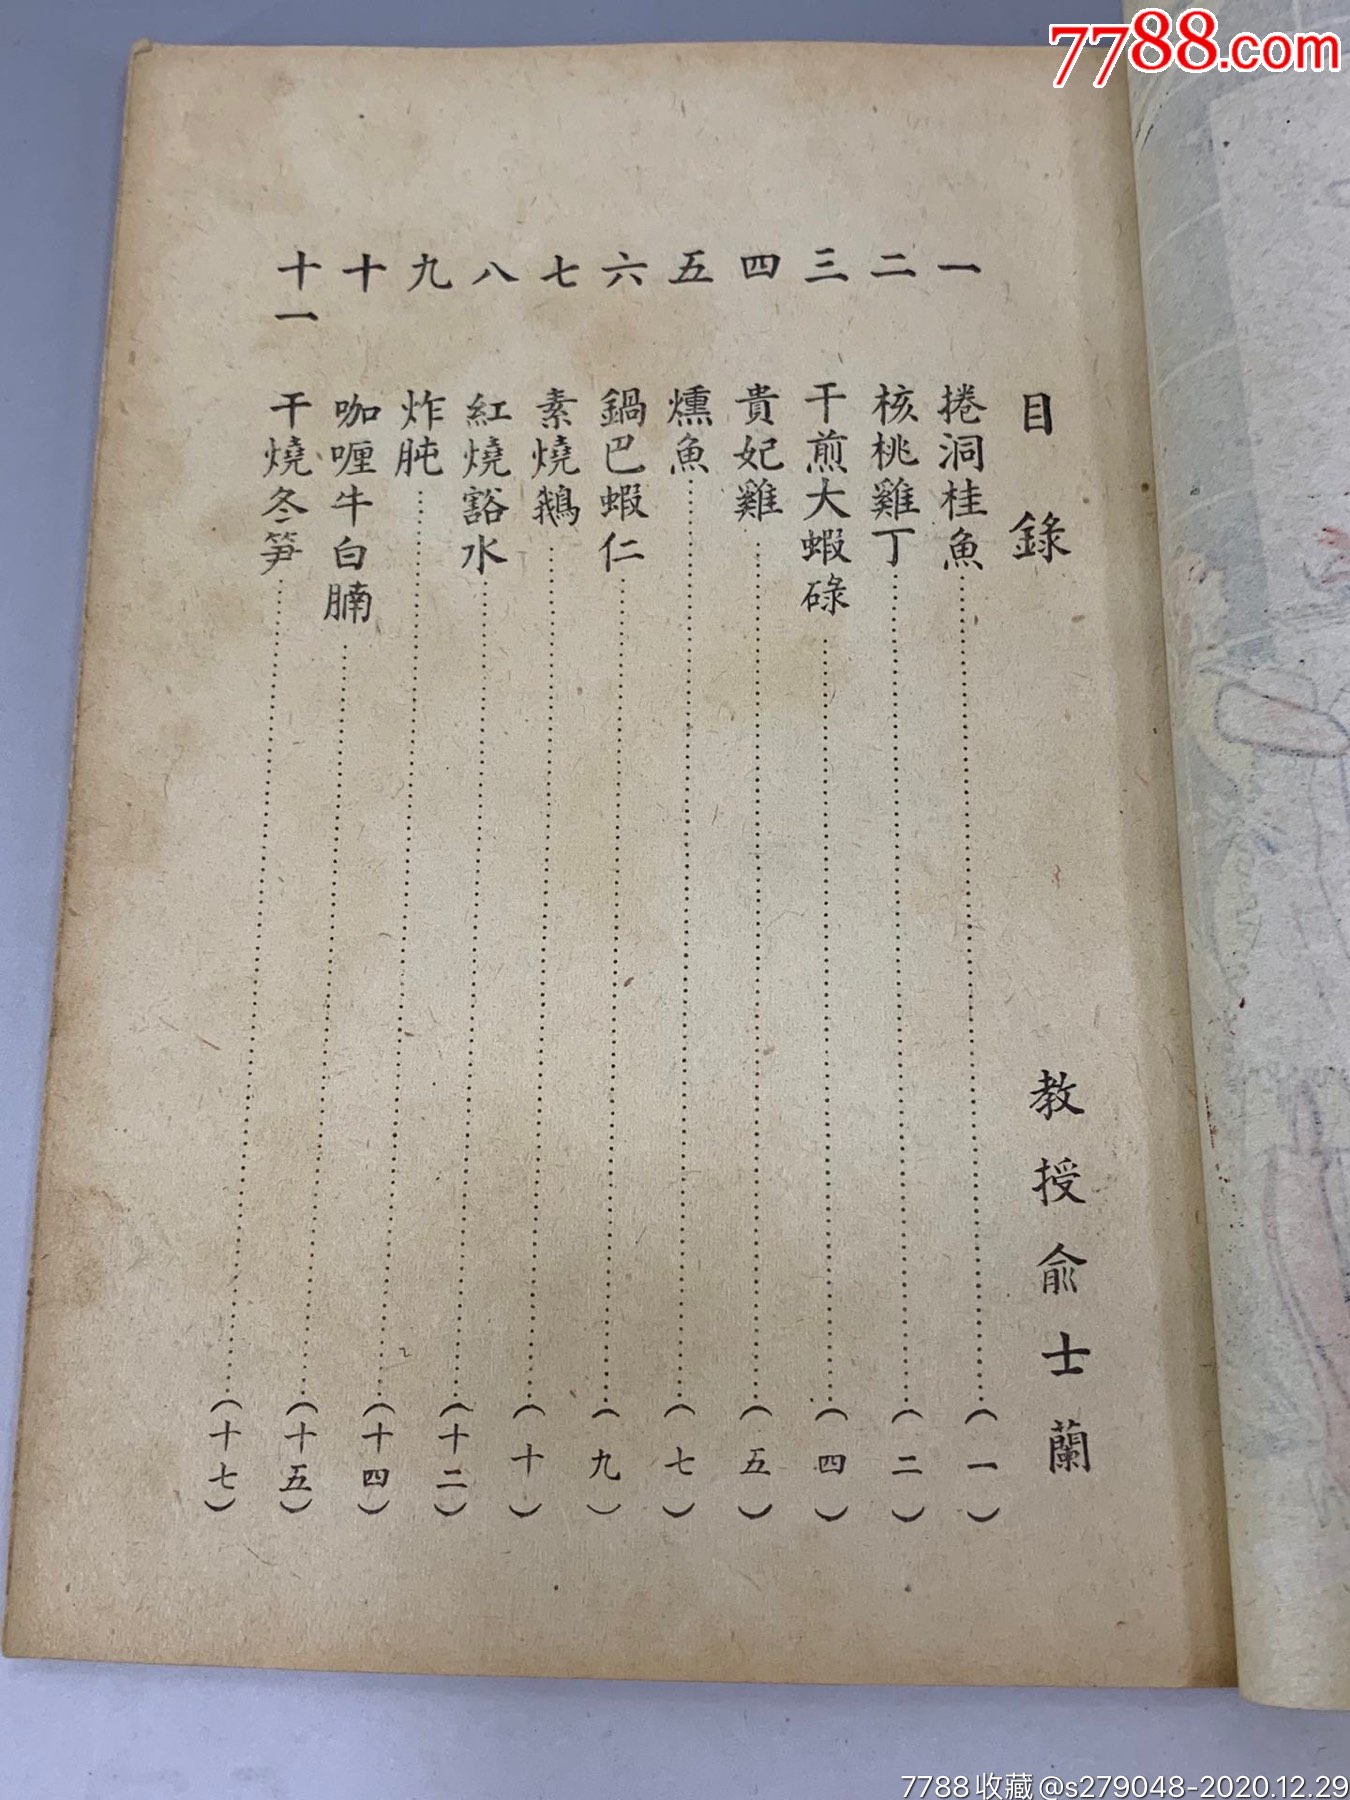 7788.com
目錄 教授俞士蘭
一 捲洞桂魚……(一)
二 核桃雞丁……(二)
三 干煎大蝦碌……(四)
四 貴妃雞……(五)
五 燻魚……(七)
六 鍋巴蝦仁……(九)
七 素燒鵝……(十)
八 紅燒豁水……(十二)
九 炸肫……(十四)
十 咖喱牛白腩……(十五)
十一 干燒冬笋……(十七)
7788收藏@s279048-2020.12.29